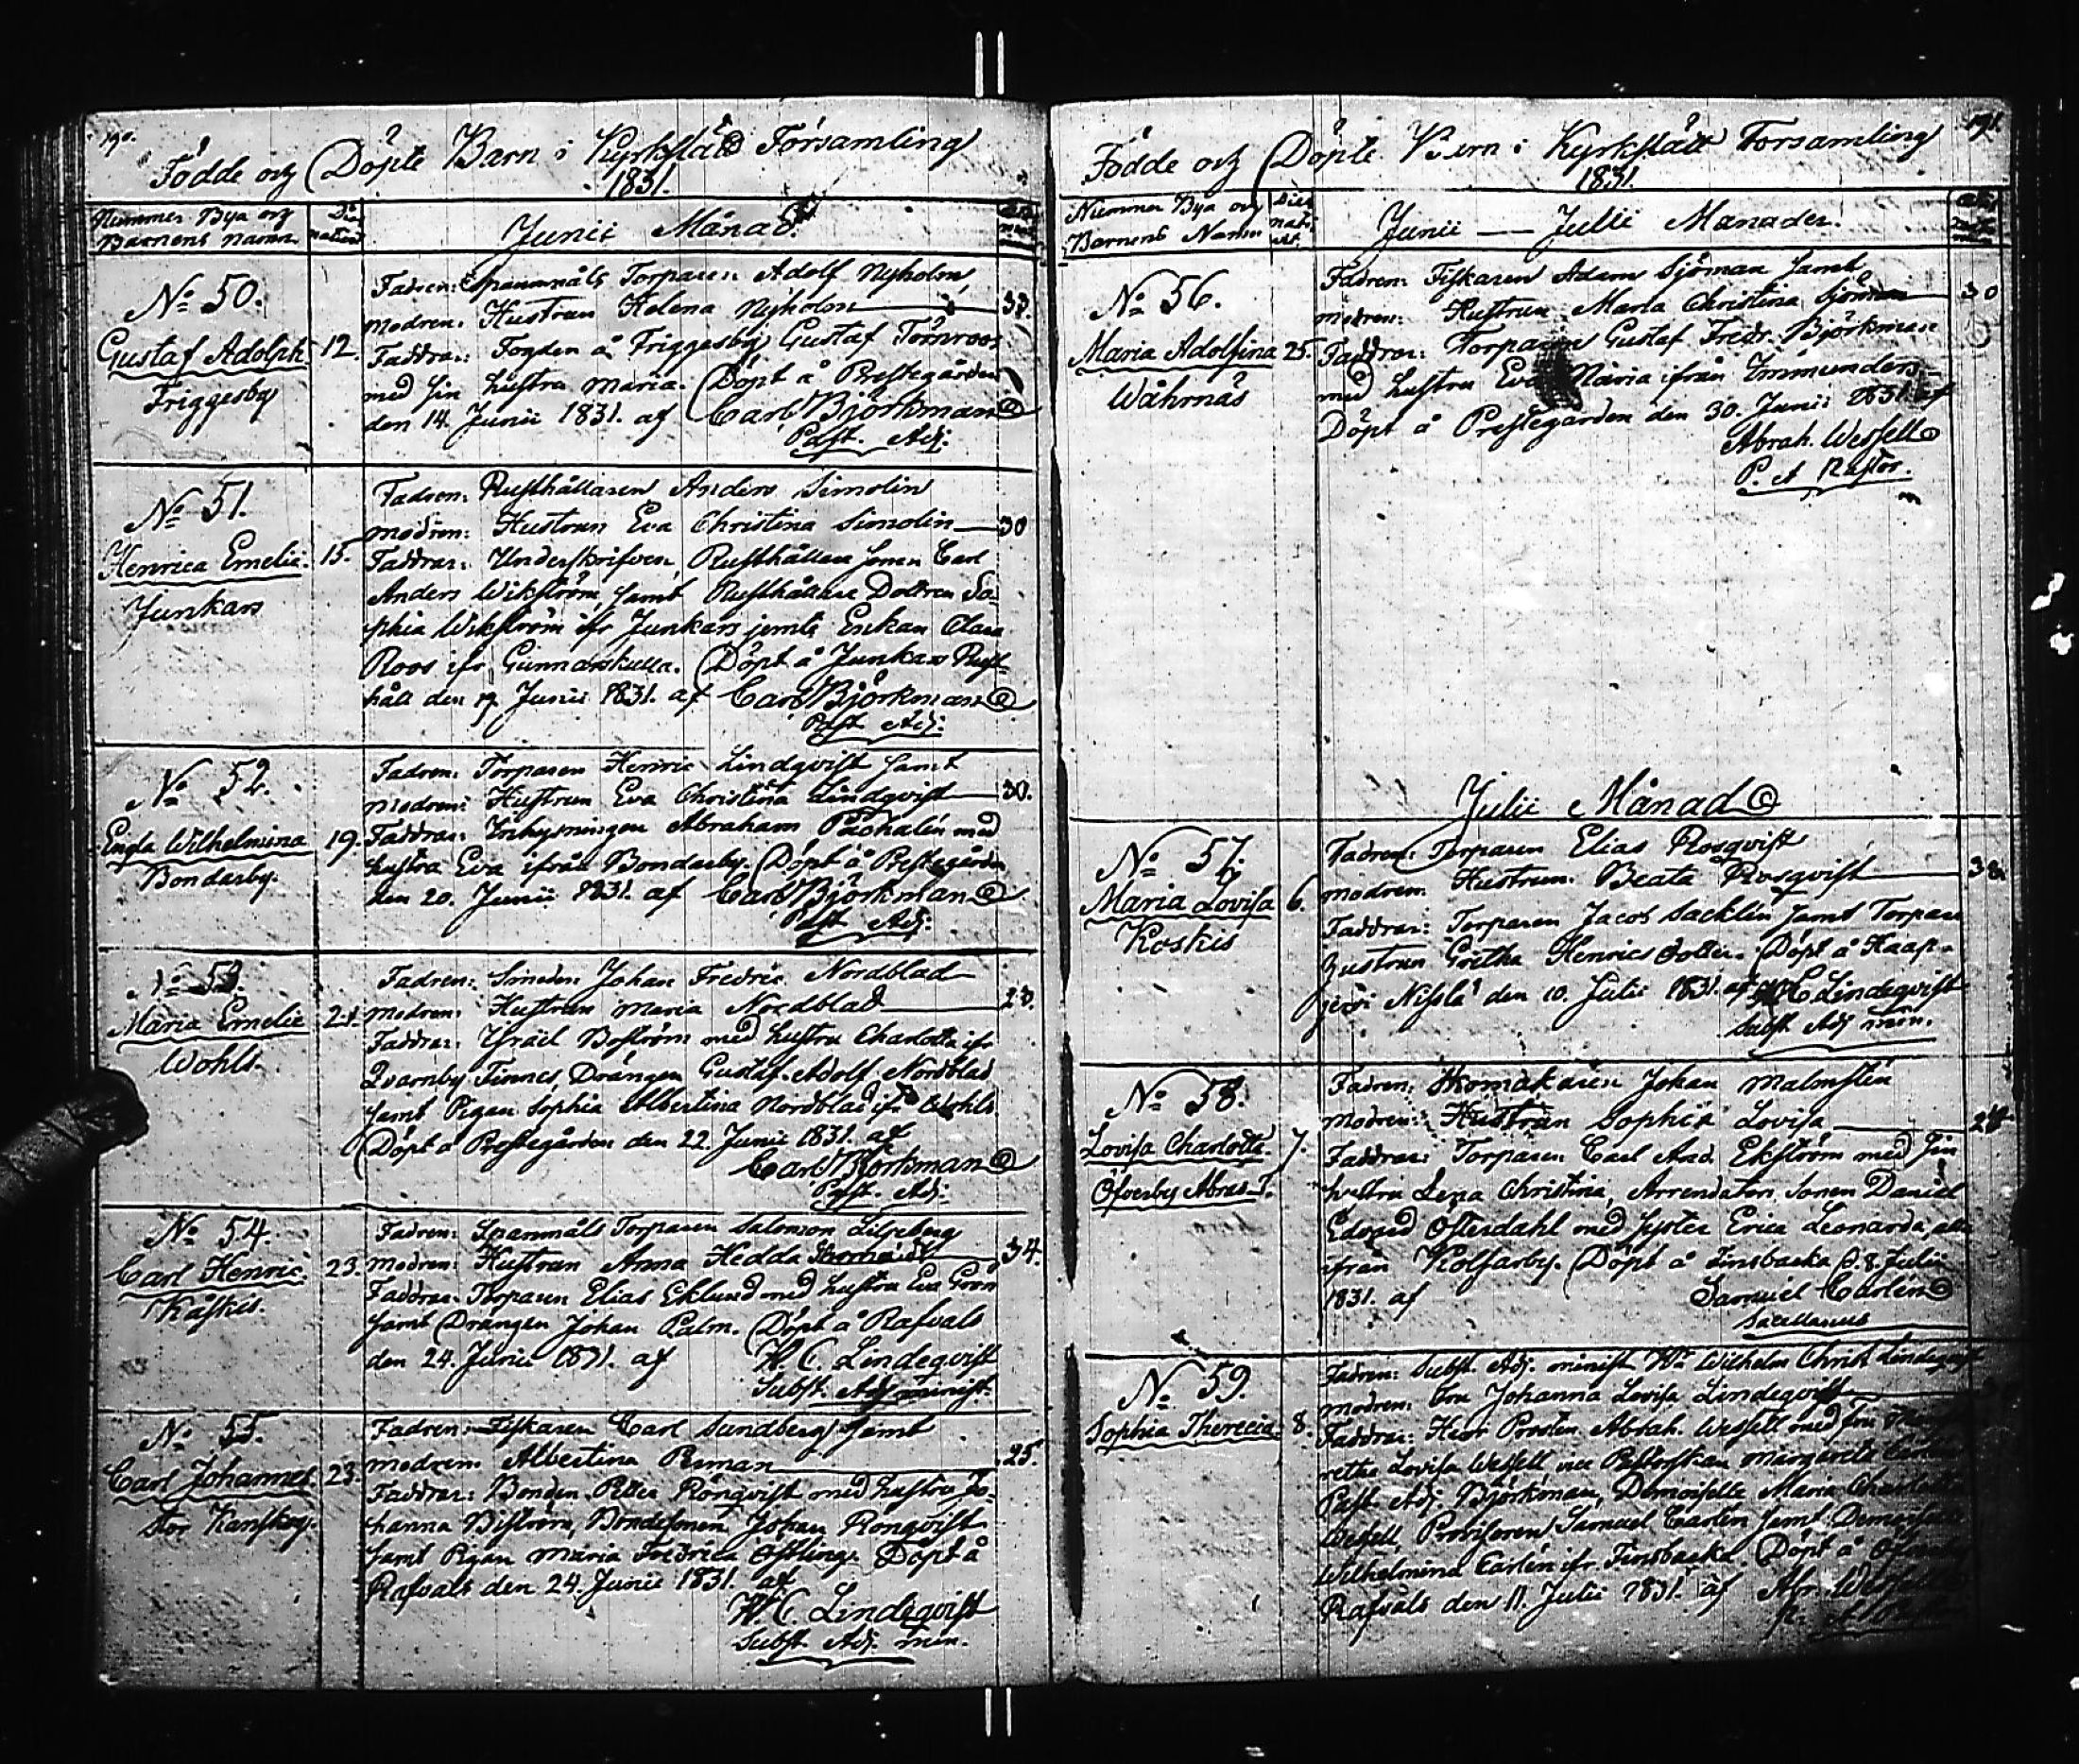 190.
Födde och Döpte Barn i Kyrkslätt Församling
1831.
Nummer Bya och
Barnens Namn
Junii Månad.
No 50.
Gustaf Adolph
Friggesby
12.
Fadren: Spannmåls Torparen Adolf Nyholm,
Modren: Hustrun Helena Nyholm
33.
Faddrar: Fogden å Friggesby Gustaf Törnroos
med sin hustru Maria. Döpt å Prestegården
den 14. Junii 1831. af Carl Björkman
Past. Adj:
No 51.
Henrica Emelie.
Junkars
15.
Fadren: Rusthållaren Anders Simolin
Modren: Hustrun Eva Christina Simolin
30
Faddrar: Underskrifven, Rusthållare Sonen Carl
Anders Wikström, samt Rusthållare Dottren So-
phia Wikström ifr Junkars jemte Enkan Clara
Roos ifr. Gunnarskulla. Döpt å Junkars Rust-
håll den 19 Junii 1831. af Carl Björkman
Past. Adj:
No 52.
Engla Wilhelmina
Bondarby.
19.
Fadren: Torparen Henric Lindqvist samt
Modren: Hustrun Eva Christina Lindqvist
30.
Faddrar: Inhysningen Abraham Paohalén med
hustru Eva ifrån Bondarby. Döpt å Prestegården
den 20. Junii 1831. af Carl Björkman
Past. Adj:
No 53.
Maria Emelie
Wohls.
21.
Fadren: Smeden Johan Fredric Nordblad
Modren: Hustrun Maria Nordblad
23.
Faddrar: Israël Boström med hustru Charlotta ifr
Qvarnby Finnes, Drängen Gustaf Adolf Nordblad
samt Pigan Sophia Albertina Nordblad ifr. Wohls.
Döpt å Prestegården den 22. Junii 1831. af
Carl Björkman
Past. Adj:
No 54.
Carl Henric.
Kåskis.
23.
Fadren: Spanmåls Torparen Salomon Liljeberg
Modren: Hustrun Anna Hedda
34.
Faddrar: Torparen Elias Eklund med hustru Eva
samt Drängen Johan Palm. Döpt å Rafvals
den 24. Junii 1831. af W. C. Lindeqvist
Subst. Adj. minist.
No 55.
Carl Johannes.
Stor Kanskog.
23.
Fadren: Fiskaren Carl Sundberg samt
Modren: Albertina Reman
25.
Faddrar: Bonden Petter Rönqvist med hustru Jo-
hanna Biström, Bondesonen Johan Rönqvist
samt Pigan Maria Fredrica Östling. Döpt å
Rafvals den 24. Junii 1831. af
W. C. Lindeqvist
Subst. Adj. min.
191.
Födde och Döpte Barn i Kyrkslätt Församling
1831.
Nummer Bya och
Barnens Namn
Junii — Julii Månader.
No 56.
Maria Adolfina
Wåhrnäs
25.
Fadren: Fiskaren Adam Sjöman samt
Modren: Hustrun Maria Christina Sjöman
30
Faddrar: Torparen Gustaf Fredr. Björkman
med hustru Eva Maria ifrån Immunders-
Döpt å Prestegården den 30. Junii 1831. af
Abrah. Wessell
P. et Pastor.
Julii Månad
No 57.
Maria Lovisa
Koskis
6.
Fadren: Torparen Elias Rosqvist
Modren: Hustrun Beata Rosqvist
Faddrar: Torparen Jacob Sacklin samt Torpare
hustrun Gretha Henrics dotter. Döpt å Haap-
jerwi Nissla den 10. Julii 1831. af W C Lindeqvist
Subst. Adj min.
No 58.
Lovisa Charlotta.
Öfverby Abras T.
7.
Fadren: Skomakaren Johan Malmstén
Modren: Hustrun Sophia Lovisa
28
Faddrar: Torparen Carl And. Ekström med sin
hustru Lena Christina, Arrendators Sonen Daniel
Edvard Österdahl med syster Erica Leonarda, alla
ifrån Kolsarby. Döpt å Finsbacka d. 8. Julii
1831. af Samuel Carlén
Sacellanus
No 59.
Sophia Therecia.
8.
Fadren: Subst. Adj. minist Wilhelm Christ. Lindeqvist
Modren: Fru Johanna Lovisa Lindeqvist
Faddrar: Herr Prosten Abrah. Wessell med fru Marga-
retha Lovisa Wessell, Pastorskan Margareta
Past. Adj. Björkman, Demoiselle Maria Charlotta
Wessell, Provisoren Samuel Carlén samt Demoiselle
Wilhelmina Carlén ifr. Finsbacka. Döpt å Öfverby
Rafvals den 11. Julii 1831. af Abr. Wessell